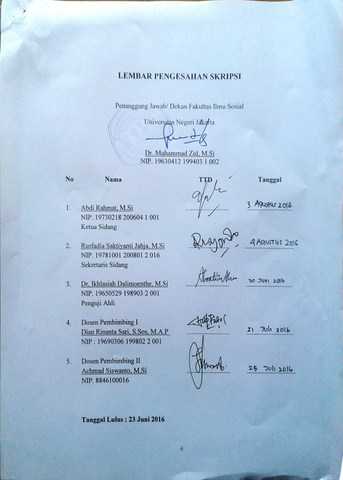 LEMBAR PENGESAHAN SKRIPSI
Penanggung Jawab/ Dekan Fakultas Ilmu Sosial
Universitas Negeri Jakarta
Dr. Muhammad Zid, M.Si
NIP. 19630412 199403 1 002
No Nama TTD Tanggal
1. Abdi Rahmat, M.Si 3 AGUSTUS 2016
NIP. 19730218 200604 1 001
Ketua Sidang
2. Rusfadia Saktiyanti Jahja, M.Si 4 AGUSTUS 2016
NIP. 19781001 200801 2 016
Sekretaris Sidang
3. Dr. Ikhlasiah Dalimoenthe, M.Si 30 JUNI 2016
NIP. 19650529 198903 2 001
Penguji Ahli
4. Dosen Pembimbing I
Dian Rinanta Sari, S.Sos, M.A.P 21 JULI 2016
NIP : 19690306 199802 2 001
5. Dosen Pembimbing II
Achmad Siswanto, M.Si 25 JULI 2016
NIP. 8846100016
Tanggal Lulus : 23 Juni 2016